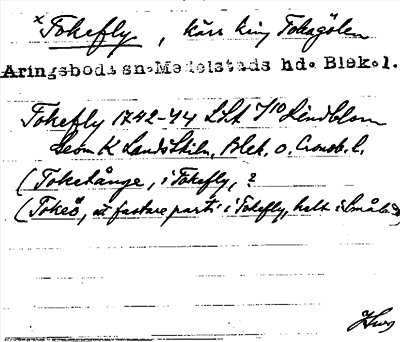 x Tokefly, kärr kring Tokagölen
Aringsbods sn. Medelstads hd. Blek. l.
Tokefly 1742-44 Lilt Lindblom
Geom K Landtbiln, Blek. o. Cronob. l.
(Toketånge, i Tokefly, ?
(Tokeö, ett fastare parti i Tokefly, helt i Småland)